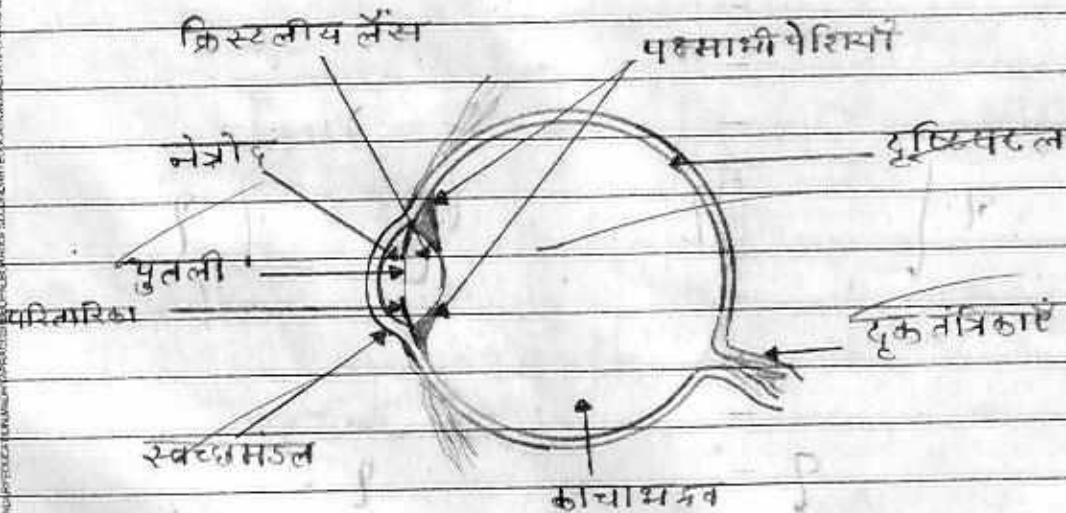 क्रिस्टलीय लैंस
पक्ष्माभी पेशियाँ
नेत्रोद
दृष्टिपटल
पुतली
परितारिका
दृक तंत्रिकाएँ
स्वच्छमंडल
काचाभ द्रव